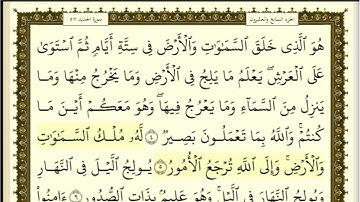 الجزء السابع والعشرون سورة الحديد ٥٧
هُوَ ٱلَّذِى خَلَقَ ٱلسَّمَٰوَٰتِ وَٱلْأَرْضَ فِى سِتَّةِ أَيَّامٍ ثُمَّ ٱسْتَوَىٰ
عَلَى ٱلْعَرْشِ ۚ يَعْلَمُ مَا يَلِجُ فِى ٱلْأَرْضِ وَمَا يَخْرُجُ مِنْهَا وَمَا
يَنزِلُ مِنَ ٱلسَّمَآءِ وَمَا يَعْرُجُ فِيهَا ۖ وَهُوَ مَعَكُمْ أَيْنَ مَا
كُنتُمْ ۚ وَٱللَّهُ بِمَا تَعْمَلُونَ بَصِيرٌ ٤ لَّهُۥ مُلْكُ ٱلسَّمَٰوَٰتِ
وَٱلْأَرْضِ ۚ وَإِلَى ٱللَّهِ تُرْجَعُ ٱلْأُمُورُ ٥ يُولِجُ ٱلَّيْلَ فِى ٱلنَّهَارِ
وَيُولِجُ ٱلنَّهَارَ فِى ٱلَّيْلِ ۚ وَهُوَ عَلِيمٌۢ بِذَاتِ ٱلصُّدُورِ ٦ ءَامِنُوا۟